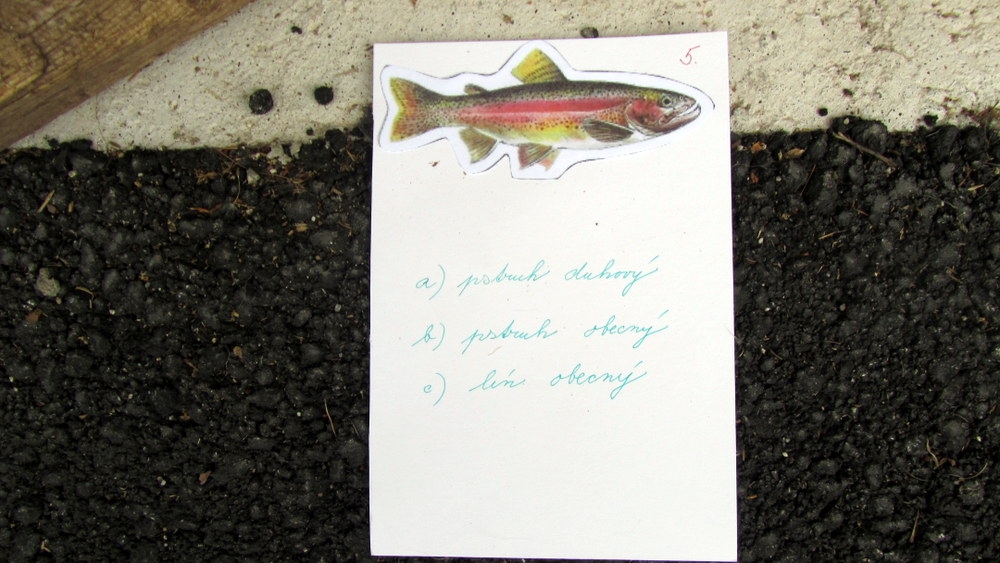 5.
a) pstruh duhový
b) pstruh obecný
c) lín obecný